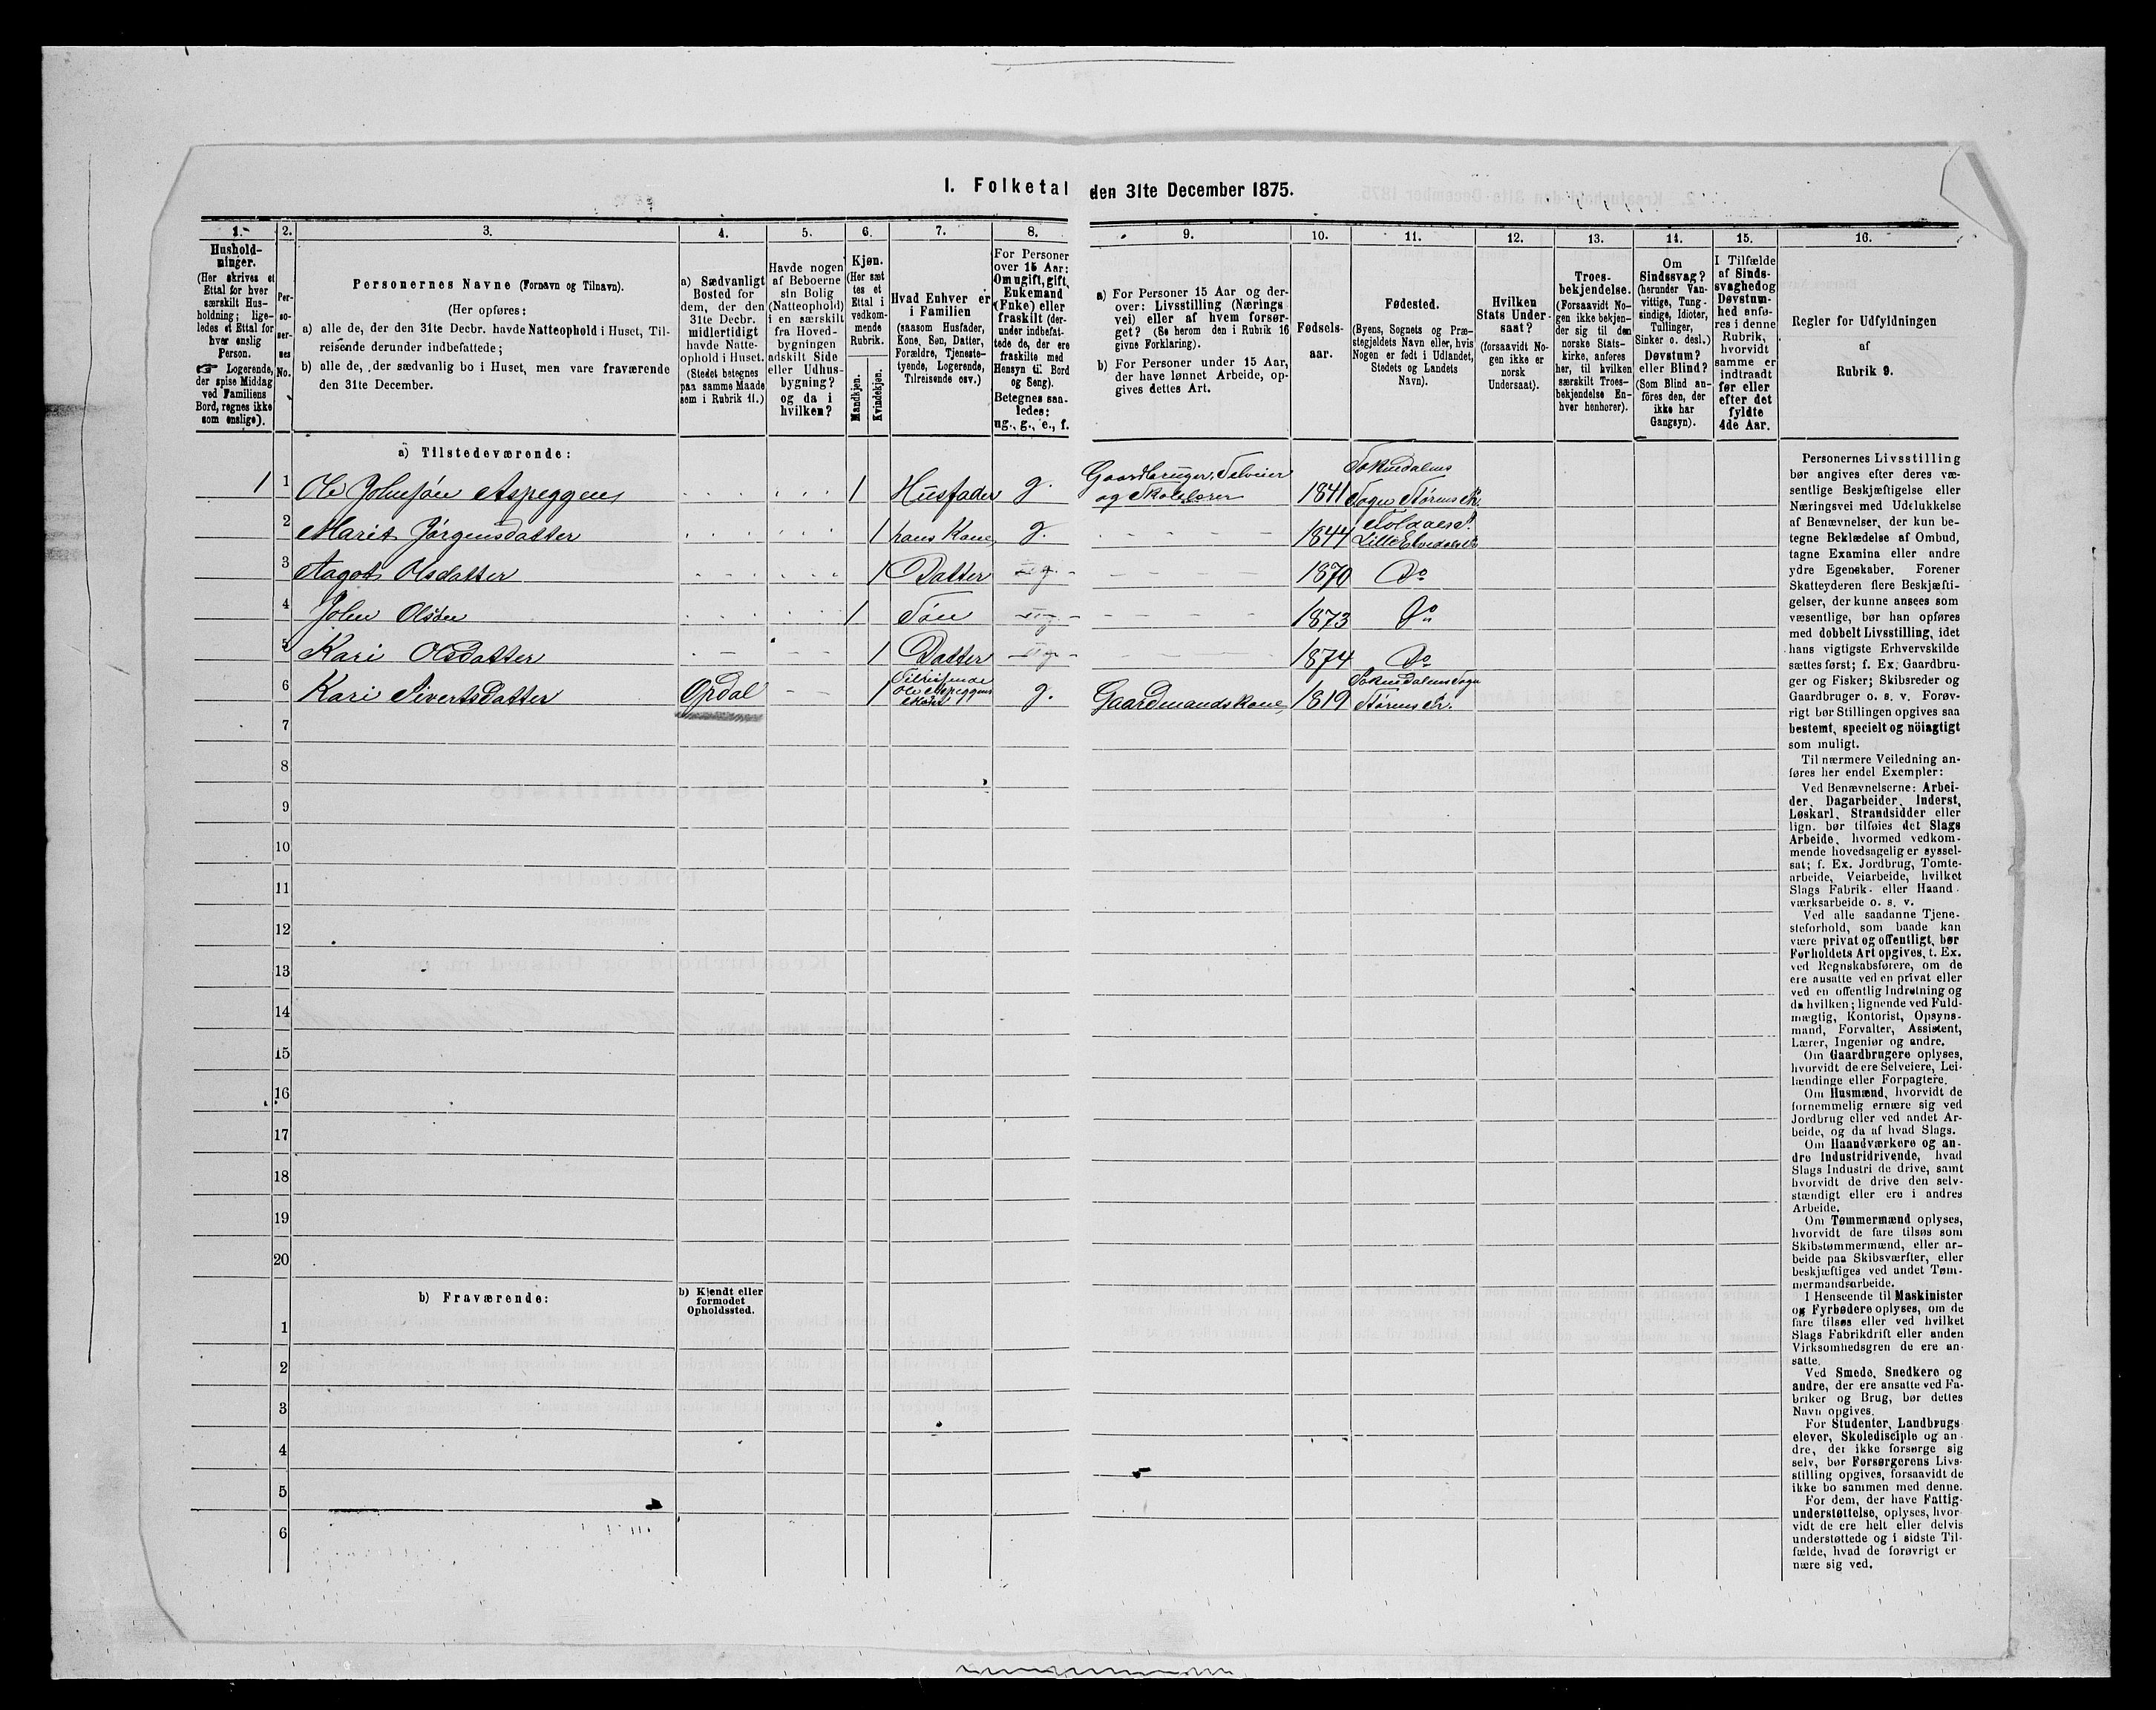 I. Folketal den 31te December 1875.
1.
Hushold-
ninger.
(Her skrives et
Ettal for hver
særskilt Hus-
holdning; lige-
ledes et Ettal for
hver enslig
Person.
☞ Logerende,
der spise Middag
ved Familiens
Bord, regnes ikke
som enslige).
2.
Per-
so-
ner-
nes
No.
3.
Personernes Navne (Fornavn og Tilnavn).
(Her opføres:
a) alle de, der den 31te Decbr. havde Natteophold i Huset, Til-
reisende derunder indbefattede;
b) alle de, der sædvanlig bo i Huset, men vare fraværende
den 31te December.
4.
a) Sædvanligt
Bosted for
dem, der den
31te Decbr.
midlertidigt
havde Natte-
ophold i Huset.
(Stedet betegnes
paa samme Maade
som i Rubrik 11.)
5.
Havde nogen
af Beboerne
sin Bolig
(Natteophold)
i en særskilt
fra Hoved-
bygningen
adskilt Side
eller Udhus-
bygning?
og da i
hvilken?
6.
Kjøn.
(Her sæt
tes et
Ettal i
vedkom-
mende
Rubrik.
Mandkjøn.
Kvindekjøn.
7.
Hvad Enhver er
i Familien
(saasom Husfader,
Kone, Søn, Datter,
Forældre, Tjeneste-
tyende, Logerende,
Tilreisende osv.)
8.
For Personer
over 15 Aar:
Om ugift, gift,
Enkemand
(Enke) eller
fraskilt (der-
under indbefat-
tede de, der ere
fraskilte med
Hensyn til Bord
og Seng).
Betegnes saa-
ledes:
ug., g., e., f.
9.
a) For Personer 15 Aar og der-
over: Livsstilling (Nærings
vei) eller af hvem forsør-
get? (Se herom den i Rubrik 16
givne Forklaring).
b) For Personer under 15 Aar,
der have lønnet Arbeide, op-
gives dettes Art.
10.
Fødsels-
aar.
11.
Fødested.
(Byens, Sognets og Præ-
stegjeldets Navn eller, hvis
Nogen er født i Udlandet,
Stedets og Landets
Navn).
12.
Hvilken
Stats Under-
saat?
(forsaavidt No-
gen ikke er
norsk
Undersaat).
13.
Troes-
bekjendelse.
(Forsaavidt No-
gen ikke bekjen-
der sig til den
norske Stats-
kirke, anføres
her, til hvilken
særskilt Troes-
bekjendelse En-
hver henhører).
14.
Om
Sindssvag?
(herunder Van-
vittige, Tung-
sindige, Idioter,
Tullinger,
Sinker o. desl.)
Døvstum?
eller Blind?
(Som Blind an-
føres den, der
ikke har
Gangsyn).
15.
I Tilfælde
af Sinds-
svaghed og
Døvstum-
hed anfø-
res i denne
Rubrik,
hvorvidt
samme er
indtraadt
før eller
efter det
fyldte
4de Aar.
16.
Regler for Udfyldningen
af
Rubrik 9.
a) Tilstedeværende:
1 1 Ole Johnsön Aspeggen 1 Husfader g. Gaardbruger, Selveier og Skolelærer 1841 Soknedalens Sogn Størens Pr.
2 Marit Jörgensdatter 1 hans Kone g. 1844 Foldals A. Lille Elvedalens Pr.
3 Aagot Olsdatter 1 Datter ug. 1870 Do
4 John Olsön 1 Sön ug 1873 Do
5 Kari Olsdatter 1 Datter ug. 1874 Do
6 Kari Sivertsdatter Opdal 1 Tilreisende Ole Aspeggens g. Gaardmandskone 1819 Soknedalens Sogn Størens Pr.
7
8
9
10
11
12
13
14
15
16
17
18
19
20
b) Fraværende:
b) Kjendt eller
formodet
Opholdssted.
1
2
3
4
5
6
Personernes Livsstilling
bør angives efter deres væ-
sentlige Beskjæftigelse eller
Næringsvei med Udelukkelse
af Benævnelser, der kun be-
tegne Beklædelse af Ombud,
tagne Examina eller andre
ydre Egenskaber. Forener
Skatteyderen flere Beskjæfti-
gelser, der kunne ansees som
væsentlige, bør han opføres
med dobbelt Livsstilling, idet
hans vigtigste Erhvervskilde
sættes først; f. Ex. Gaardbru-
ger og Fisker; Skibsreder og
Gaardbruger o. s. v. Forøv-
rigt bør Stillingen opgives saa
bestemt, specielt og nöiagtigt
som muligt.
Til nærmere Veiledning an-
føres her endel Exempler:
Ved Benævnelserne: Arbei-
der, Dagarbeider, Inderst,
Løskarl, Strandsidder eller
lign. bør tilføies det Slags
Arbeide, hvormed vedkom-
mende hovedsagelig er syssel-
sat; f. Ex. Jordbrug, Tomte-
arbeide, Veiarbeide, hvilket
Slags Fabrik- eller Haand-
værksarbeide o. s. v.
Ved alle saadanne Tjene-
steforhold, som baade kan
være privat og offentligt, bør
Forholdets Art opgives, t. Ex.
ved Regnskabsførere, om de
ere ansatte ved en privat eller
ved en offentlig Indretning og
da hvilken; lignende ved Fuld-
mægtig, Kontorist, Opsyns-
mand, Forvalter, Assistent,
Lærer, Ingeniør og andre.
Om Gaardbrugere oplyses,
hvorvidt de ere Selveiere, Lei-
lændinge eller Forpagtere.
Om Husmænd, hvorvidt de
fornemmelig ernære sig ved
Jordbrug eller ved andet Ar-
beide, og da af hvad Slags.
Om Haandværkere og an-
dre Industridrivende, hvad
Slags Industri de drive, samt
hvorvidt de drive den selv-
stændigt eller ere i andres
Arbeide.
Om Tømmermænd oplyses,
hvorvidt de fare tilsøs som
Skibstømmermænd, eller ar-
beide paa Skibsværfter, eller
beskjæftiges ved andet Tøm-
mermandsarbeide.
I Henseende til Maskinister
og Fyrbødere oplyses, om de
fare tilsøs eller ved hvilket
Slags Fabrikdrift eller anden
Virksomhedsgren de ere an-
satte.
Ved Smede, Snedkere og
andre, der ere ansatte ved Fa-
briker og Brug, bør dettes
Navn opgives.
For Studenter, Landbrugs
elever, Skoledisciple og an-
dre, der ikke forsørge sig
selv, bør Forsørgerens Livs-
stilling opgives, forsaavidt de
ikke bo sammen med denne.
For dem, der have Fattig-
understøttelse, oplyses, hvor-
vidt de ere helt eller delvis
understøttede og i sidste Til-
fælde, hvad de forøvrigt er
nære sig ved.